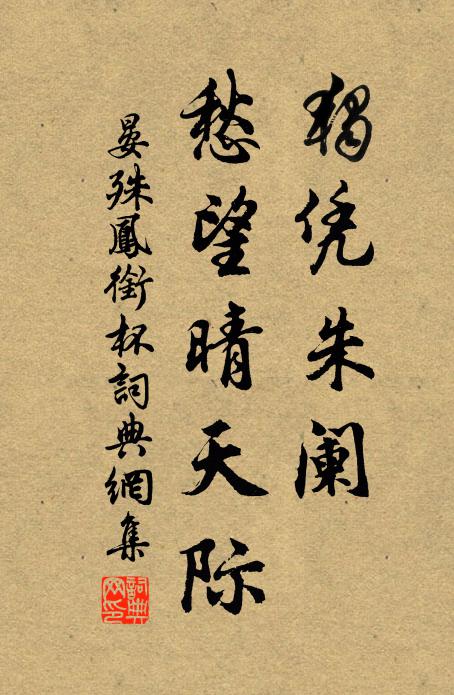 独凭朱阑
愁望晴天际
晏殊鳳銜杯詞典網集
詞典网印